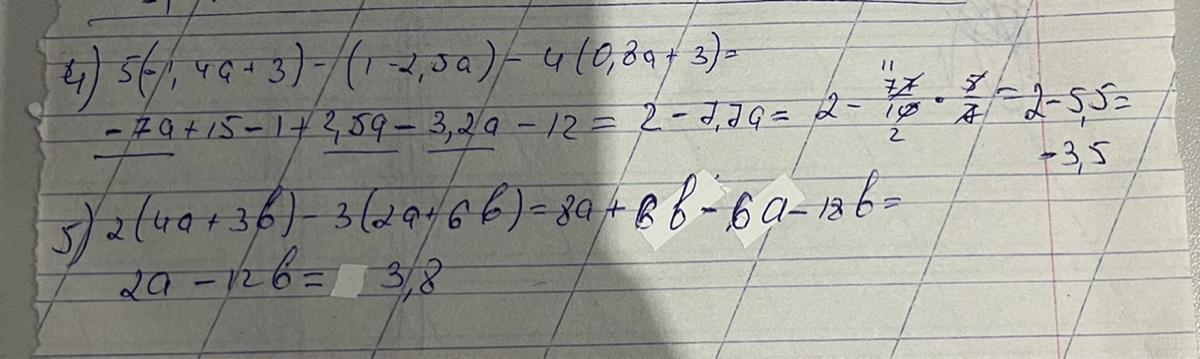 4) 5(-1,4a+3)-(1-2,5a)-4(0,8a+3)=
-7a+15-1+2,5a-3,2a-12=2-7,7a=2-\frac{77}{10}·\frac{5}{7}=2-5,5=
11
2
-3,5
5) 2(4a+3b)-3(2a+6b)=8a+6b-6a-18b=
2a-12b= 3,8